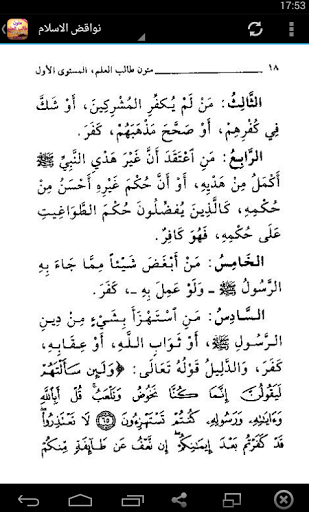 17:53
نواقض الاسلام
١٨ متون طالب العلم، المستوى الأول
الثَّالِثُ: مَنْ لَمْ يُكَفِّرِ المُشْرِكِينَ، أَوْ شَكَّ
فِي كُفْرِهِمْ، أَوْ صَحَّحَ مَذْهَبَهُمْ، كَفَرَ.
الرَّابِعُ: مَنِ اعْتَقَدَ أَنَّ غَيْرَ هَدْيِ النَّبِيِّ ﷺ
أَكْمَلُ مِنْ هَدْيِهِ، أَوْ أَنَّ حُكْمَ غَيْرِهِ أَحْسَنُ مِنْ
حُكْمِهِ، كَالَّذِينَ يُفَضِّلُونَ حُكْمَ الطَّوَاغِيتِ
عَلَى حُكْمِهِ، فَهُوَ كَافِرٌ.
الخَامِسُ: مَنْ أَبْغَضَ شَيْئاً مِمَّا جَاءَ بِهِ
الرَّسُولُ ﷺ ـ وَلَوْ عَمِلَ بِهِ ـ، كَفَرَ.
السَّادِسُ: مَنِ اسْتَهْزَأَ بِشَيْءٍ مِنْ دِينِ
الرَّسُولِ ﷺ، أَوْ ثَوَابِ اللَّهِ، أَوْ عِقَابِهِ،
كَفَرَ، وَالدَّلِيلُ قَوْلُهُ تَعَالَى: ﴿وَلَئِن سَأَلْتَهُمْ
لَيَقُولُنَّ إِنَّمَا كُنَّا نَخُوضُ وَنَلْعَبُ قُلْ أَبِاللَّهِ
وَءَايَٰتِهِۦ وَرَسُولِهِۦ كُنتُمْ تَسْتَهْزِءُونَ ٦٥ لَا تَعْتَذِرُوا۟
قَدْ كَفَرْتُم بَعْدَ إِيمَٰنِكُمْ إِن نَّعْفُ عَن طَآئِفَةٍ مِّنكُمْ